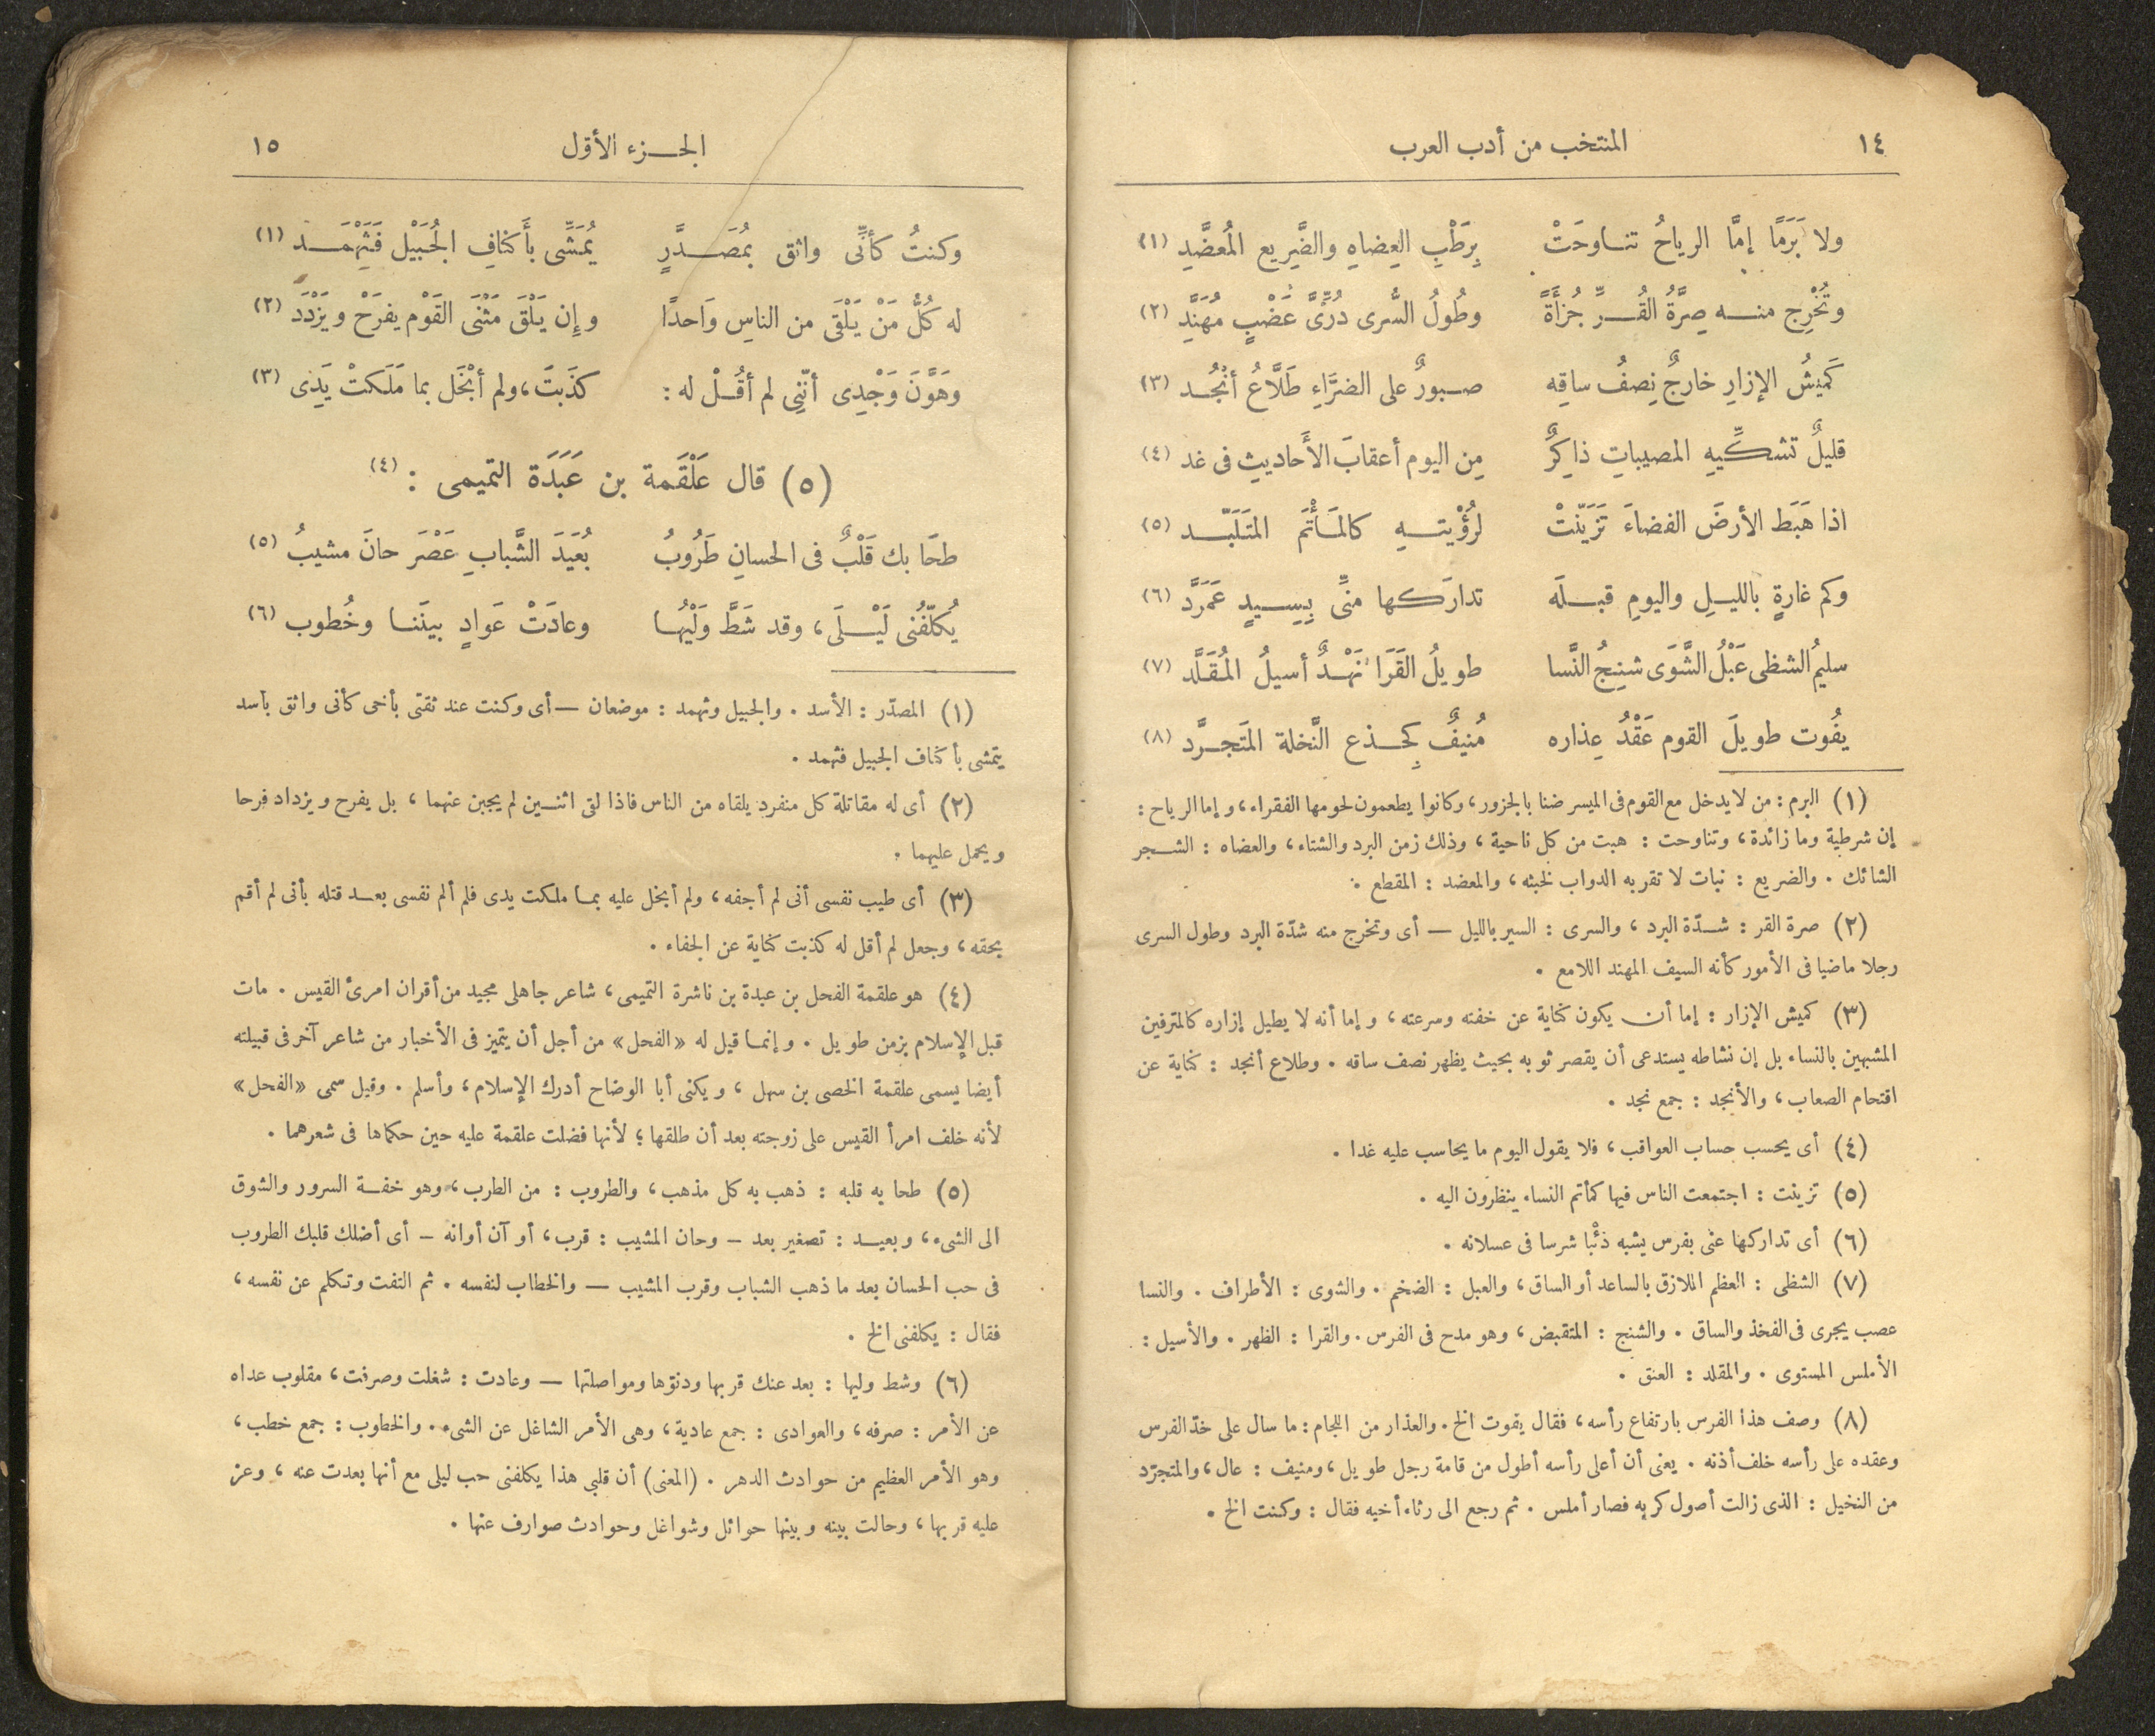 ١٤ المنتخب من أدب العرب
ولا بَرَمًا إمَّا الرياحُ تناوحَتْ بِرَطْبِ العِضاهِ والضَّرِيع المُعضَّدِ (١)
وتُخْرِج منه صِرَّةُ القُرِّ جُرْأَةً وطُولُ السُّرى دُرِّىَّ عَضْبٍ مُهَنَّدِ (٢)
كَمِيشُ الإزارِ خارجٌ نِصفُ ساقِه صبورٌ على الضرَّاءِ طَلَّاعُ أنْجُد (٣)
قليلٌ تشكِّيهِ المصيباتِ ذاكِرٌ مِن اليوم أعقابَ الأَحاديثِ فى غد (٤)
اذا هَبَط الأرضَ الفضاءَ تَزَيّنَتْ لرُؤْيتهِ كالمَأْتَم المتَلَبّد (٥)
وكم غارةٍ بالليلِ واليومِ قبلَه تدارَكها منِّى بِسِيدٍ عَمَرَّد (٦)
سليمُ الشظى عَبْلُ الشَّوَى شنِجُ النَّسا طويلُ القَرَا نَهْدٌ أسيلُ المُقَلَّد (٧)
يفُوت طويلَ القوم عَقْدُ عِذاره مُنيفٌ كِجذع النَّخلة المتَجرَّد (٨)
(١) البرم : من لا يدخل مع القوم فى الميسر ضنا بالجزور، وكانوا يطعمون لحومها الفقراء، وإما الرياح :
إن شرطية وما زائدة، وتناوحت : هبت من كل ناحية، وذلك زمن البرد والشتاء، والعضاه : الشجر
الشائك . والضريع : نبات لا تقربه الدواب لخبثه، والمعضد : المقطع .
(٢) صرة القر : شدّة البرد، والسرى : السير بالليل — أى وتخرج منه شدّة البرد وطول السرى
رجلا ماضيا فى الأمور كأنه السيف المهند اللامع .
(٣) كميش الإزار : إما أن يكون كناية عن خفته وسرعته، وإما أنه لا يطيل إزاره كالمترفين
المشبهين بالنساء بل إن نشاطه يستدعى أن يقصر ثوبه بحيث يظهر نصف ساقه . وطلاع أنجد : كناية عن
اقتحام الصعاب، والأنجد : جمع نجد .
(٤) أى يحسب حساب العواقب، فلا يقول اليوم ما يحاسب عليه غدا .
(٥) تزينت : اجتمعت الناس فيها كمأتم النساء ينظرون اليه .
(٦) أى تداركها عنى بفرس يشبه ذئبا شرسا فى عسلانه .
(٧) الشظى : العظم اللازق بالساعد أو الساق، والعبل : الضخم . والشوى : الأطراف . والنسا
عصب يجرى فى الفخذ والساق . والشنج : المتقبض، وهو مدح فى الفرس . والقرا : الظهر . والأسيل :
الأملس المستوى . والمقلد : العنق .
(٨) وصف هذا الفرس بارتفاع رأسه، فقال يفوت الخ . والعذار من اللجام : ما سال على خدّ الفرس
وعقده على رأسه خلف أذنه . يعنى أن أعلى رأسه أطول من قامة رجل طويل، ومنيف : عال، والمتجرّد
من النخيل : الذى زالت أصول كربه فصار أملس . ثم رجع الى رثاء أخيه فقال : وكنت الخ .
الجزء الأوّل ١٥
وكنتُ كأنِّى واثق بمُصَدَّرٍ يُمَشِّى بأَكنافِ الجُبَيْل فَثَهْمَد (١)
له كُلُّ مَنْ يَلْقَى من الناسِ وَاحدًا وإِن يَلْقَ مَثْنَى القَوْم يفرَحْ ويَزْدَد (٢)
وهَوَّنَ وَجْدِى أنّنِى لم أقُلْ له : كذَبتَ، ولم أبْخَل بما مَلَكتْ يَدِى (٣)
(٥) قال عَلْقَمة بن عَبَدَة التميمى : (٤)
طحَا بك قَلْبٌ فى الحسانِ طَرُوبُ بُعَيَدَ الشَّبابِ عَصْرَ حانَ مشيبُ (٥)
يُكلّفُنى لَيْلَى، وقد شَطَّ وَلْيُها وعادَتْ عَوادٍ بينَنا وخُطوب (٦)
(١) المصدّر : الأسد . والجبيل وثهمد : موضعان — أى وكنت عند ثقتى بأخى كأنى واثق بأسد
يتمشى بأكناف الجبيل فثهمد .
(٢) أى له مقاتلة كل منفرد يلقاه من الناس فاذا لقى اثنين لم يجبن عنهما، بل يفرح ويزداد فرحا
ويحمل عليهما .
(٣) أى طيب نفسى أنى لم أجفه، ولم أبخل عليه بما ملكت يدى فلم ألم نفسى بعد قتله بأنى لم أقم
بحقه، وجعل لم أقل له كذبت كناية عن الجفاء .
(٤) هو علقمة الفحل بن عبدة بن ناشرة التميمى، شاعر جاهلى مجيد من أقران امرئ القيس . مات
قبل الإسلام بزمن طويل . وإنما قيل له «الفحل» من أجل أن يتميز فى الأخبار من شاعر آخر فى قبيلته
أيضا يسمى علقمة الخصى بن سهل، ويكنى أبا الوضاح أدرك الإسلام، وأسلم . وقيل سمى «الفحل»
لأنه خلف امرأ القيس على زوجته بعد أن طلقها؛ لأنها فضلت علقمة عليه حين حكماها فى شعرهما .
(٥) طحا به قلبه : ذهب به كل مذهب، والطروب : من الطرب، وهو خفة السرور والشوق
الى الشىء، وبعيد : تصغير بعد — وحان المشيب : قرب، أو آن أوانه — أى أضلك قلبك الطروب
فى حب الحسان بعد ما ذهب الشباب وقرب المشيب — والخطاب لنفسه . ثم التفت وتكلم عن نفسه،
فقال : يكلفنى الخ .
(٦) وشط وليها : بعد عنك قربها ودنوّها ومواصلتها — وعادت : شغلت وصرفت، مقلوب عداه
عن الأمر : صرفه، والعوادى : جمع عادية، وهى الأمر الشاغل عن الشىء . والخطوب : جمع خطب،
وهو الأمر العظيم من حوادث الدهر . (المعنى) أن قلبي هذا يكلفنى حب ليلى مع أنها بعدت عنه، وعز
عليه قربها، وحالت بينه وبينها حوائل وشواغل وحوادث صوارف عنها .